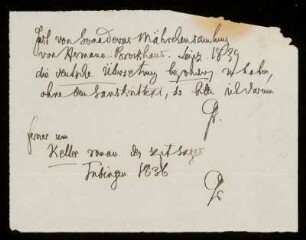 von Somadevas Mährchensammlung
von Hermann Brockhaus. Leipz. 1839
die deutsche Übersetzung besonders zu haben,
ohne den Sanskrittext, so bitte ich darum
Gr.
ferner um
Keller roman des sept sages
Tübingen 1836
Gr